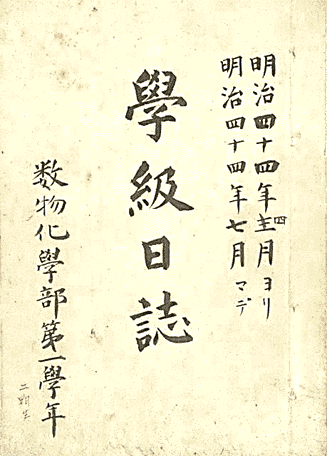 明治四十四年四月ヨリ
明治四十四年七月マデ
學級日誌
数物化學部第一學年